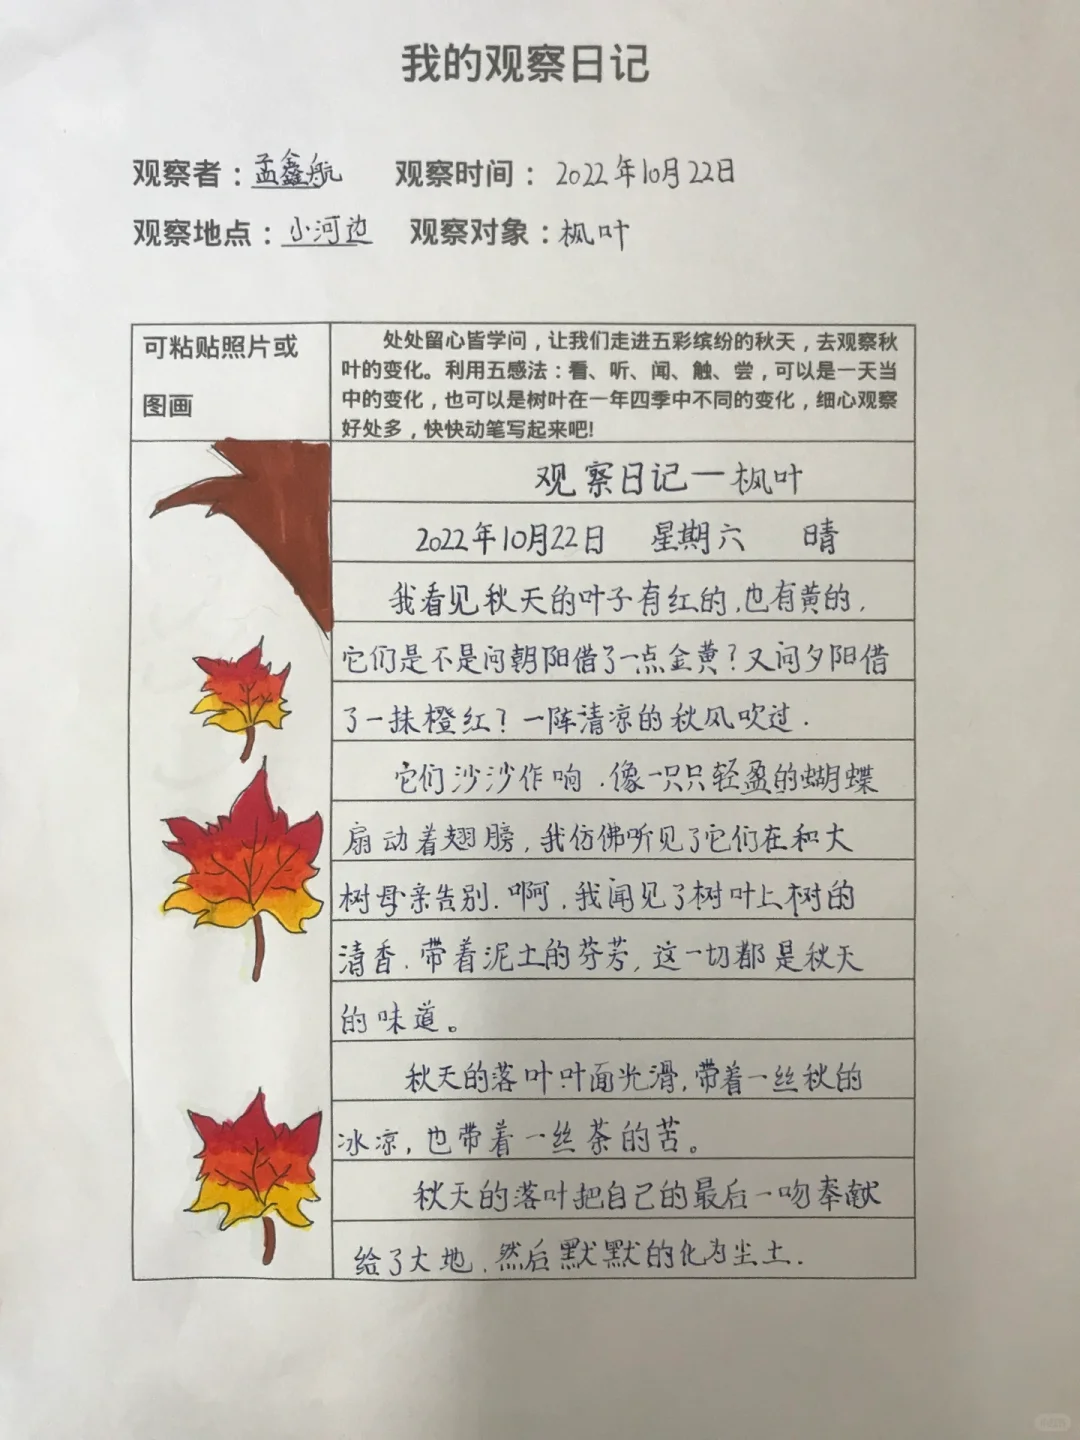 我的观察日记
观察者：孟鑫航 观察时间： 2022年10月22日
观察地点：小河边 观察对象：枫叶
可粘贴照片或
图画
处处留心皆学问，让我们走进五彩缤纷的秋天，去观察秋
叶的变化。利用五感法：看、听、闻、触、尝，可以是一天当
中的变化，也可以是树叶在一年四季中不同的变化，细心观察
好处多，快快动笔写起来吧!
观察日记一枫叶
2022年10月22日 星期六 晴
我看见秋天的叶子有红的,也有黄的,
它们是不是问朝阳借了一点金黄?又问夕阳借
了一抹橙红?一阵清凉的秋风吹过.
它们沙沙作响.像一只只轻盈的蝴蝶
扇动着翅膀,我仿佛听见了它们在和大
树母亲告别.啊,我闻见了树叶上树的
清香.带着泥土的芬芳,这一切都是秋天
的味道。
秋天的落叶叶面光滑,带着一丝秋的
冰凉,也带着一丝茶的苦。
秋天的落叶把自己的最后一吻奉献
给了大地.然后默默的化为尘土.